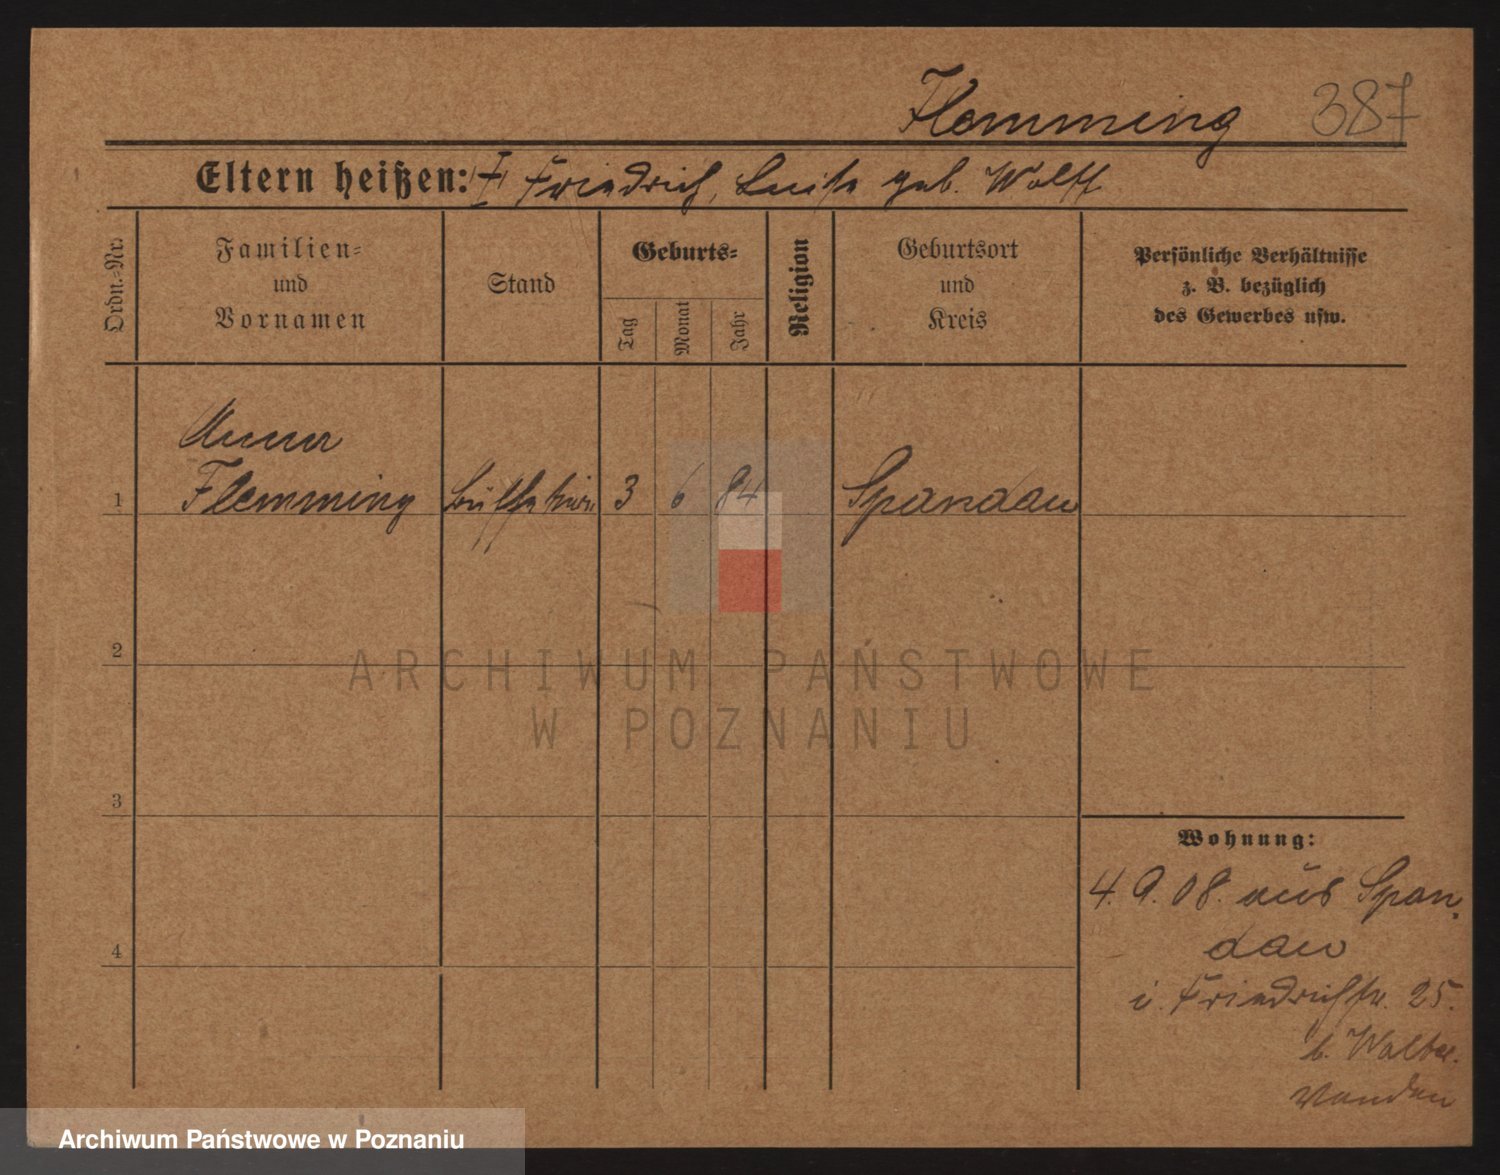 Flemming 387
Eltern heißen: Friedrich, Luise geb. Wolff
Ordn.-Nr.
Familien-
und
Vornamen
Stand
Geburts-
Tag
Monat
Jahr
Religion
Geburtsort
und
Kreis
Persönliche Verhältnisse
z. B. bezüglich
des Gewerbes usw.
Anna
1 Flemming 3 6 84 Spandau
2
ARCHIWUM PAŃSTWOWE
W POZNANIU
3
Wohnung:
4. 9. 08. aus Span-
dau
4
i. Friedrichstr. 25.
b. Walter.
Archiwum Państwowe w Poznaniu